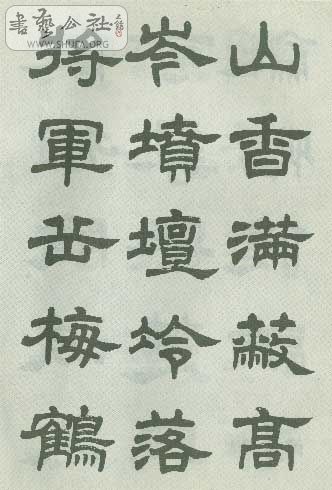 書藝公社
WWW.SHUFA.ORG
山香滿蔽高
岑墳壇冷落
將軍岳梅鶴